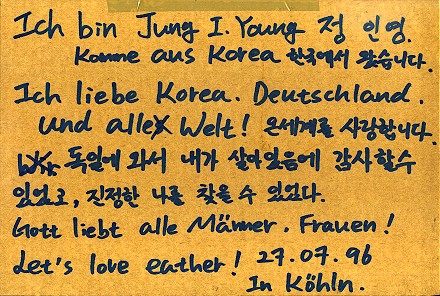 Ich bin Jung I. Young 정 인영.
Komme aus Korea 한국에서 왔습니다.
Ich liebe Korea. Deutschland.
und alle Welt! 온세계를 사랑합니다.
독일에 와서 내가 살아있음에 감사할수
있었고, 진정한 나를 찾을 수 있었다.
Gott liebt alle Männer. Frauen!
Let's love eather! 27.07.96
In Köhln.